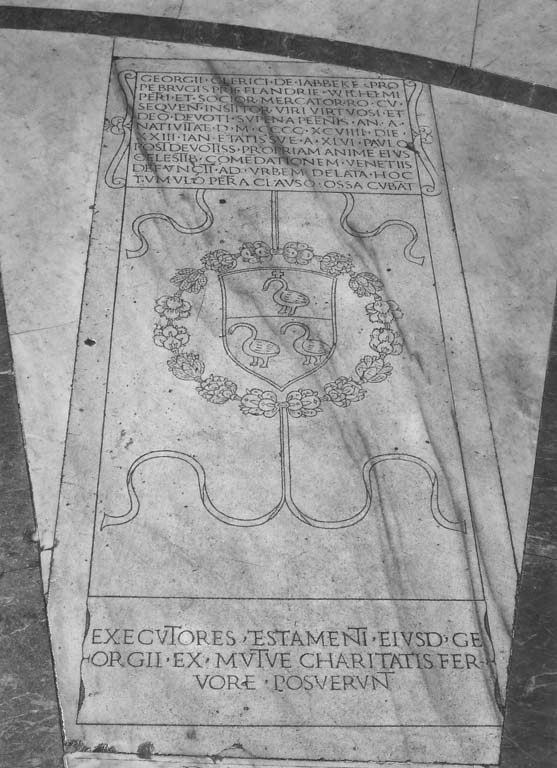 GEORGII · CLERICI · DE · IABBEKE · PRO
PE BRVGIS · PRIE · FLANDRIE · WILHELMI
PERI · ET · SOCIOR · MERCATOR · RO · CV ·
SEQVEN · INSTITOR · VIRI · VIRTVOSI · ET
DEO · DEVOTI · AN · A ·
NATIVITATE · D · M · CCCC · XCVIIII · DIE ·
XXIII · IAN · ETATIS · SVE · A · XLVI · PAVLO
POST DEVOTISS · PROPRIAM ANIME EIVS
CELESTIB COMEDATIONEM · VENETIIS
DEFVNCTI · AD · VRBEM · DELATA · HOC
TVMVLO PERACLAVSO · OSSA CVBAT
EXECVTORES · TESTAMENTI · EIVSD · GE
ORGII · EX · MVTVE CHARITATIS FER
VORE · POSVERVNT